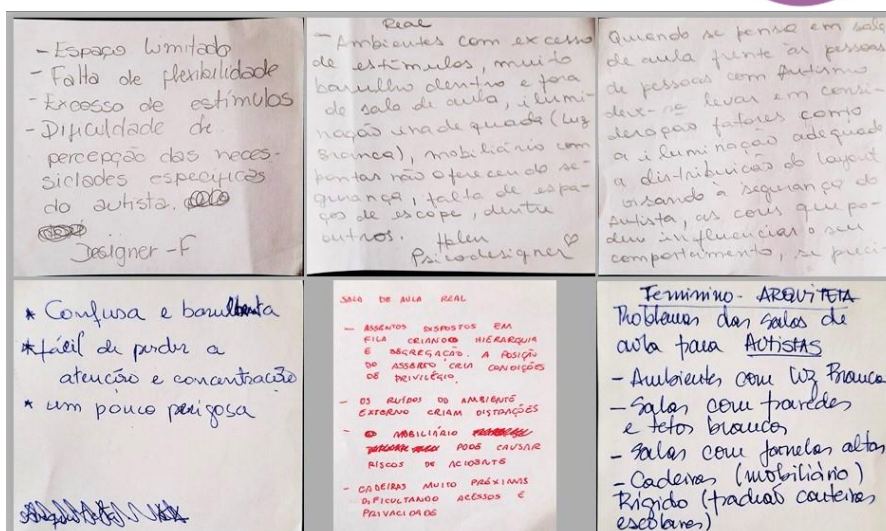 - Espaço limitado
- Falta de flexibilidade
- Excesso de estímulos
- Dificuldade de
percepção das neces-
sidades específicas
do autista.
Designer - F
Real
- Ambientes com excesso
de estímulos, muito
barulho dentro e fora
de sala de aula, ilumi-
nação inadequada (Luz
Branca), mobiliário com
pontas não oferecendo se-
gurança, falta de espa-
ço de escape, dentre
outros. Helen
Psicodesigner ♡
Quando se pensa em sala
de aula frente às pessoas
de pessoas com Autismo
deve-se levar em consi-
deração fatores como
a iluminação adequada
a distribuição do layout
visando à segurança do
Autista, as cores que po-
dem influenciar o seu
comportamento, se preci-
* Confusa e barulhenta
* fácil de perder a
atenção e concentração
* um pouco perigosa
SALA DE AULA REAL
- ASSENTOS DISPOSTOS EM
FILA CRIANDO HIERARQUIA
E SEGREGAÇÃO. A POSIÇÃO
DO ASSENTO CRIA CONDIÇÕES
DE PRIVILÉGIO.
- OS RUÍDOS DO AMBIENTE
EXTERNO CRIAM DISTRAÇÕES
- O MOBILIÁRIO
PODE CAUSAR
RISCOS DE ACIDENTE
- CADEIRAS MUITO PRÓXIMAS
DIFICULTANDO ACESSOS E
PRIVACIDADE
Feminino - ARQUITETA
Problemas das salas de
aula para AUTISTAS
- Ambientes com luz Branca
- Salas com paredes
e tetos brancos
- Salas com janelas altas
- Cadeiras (mobiliário)
Rígido (padrão carteiras
escolares)